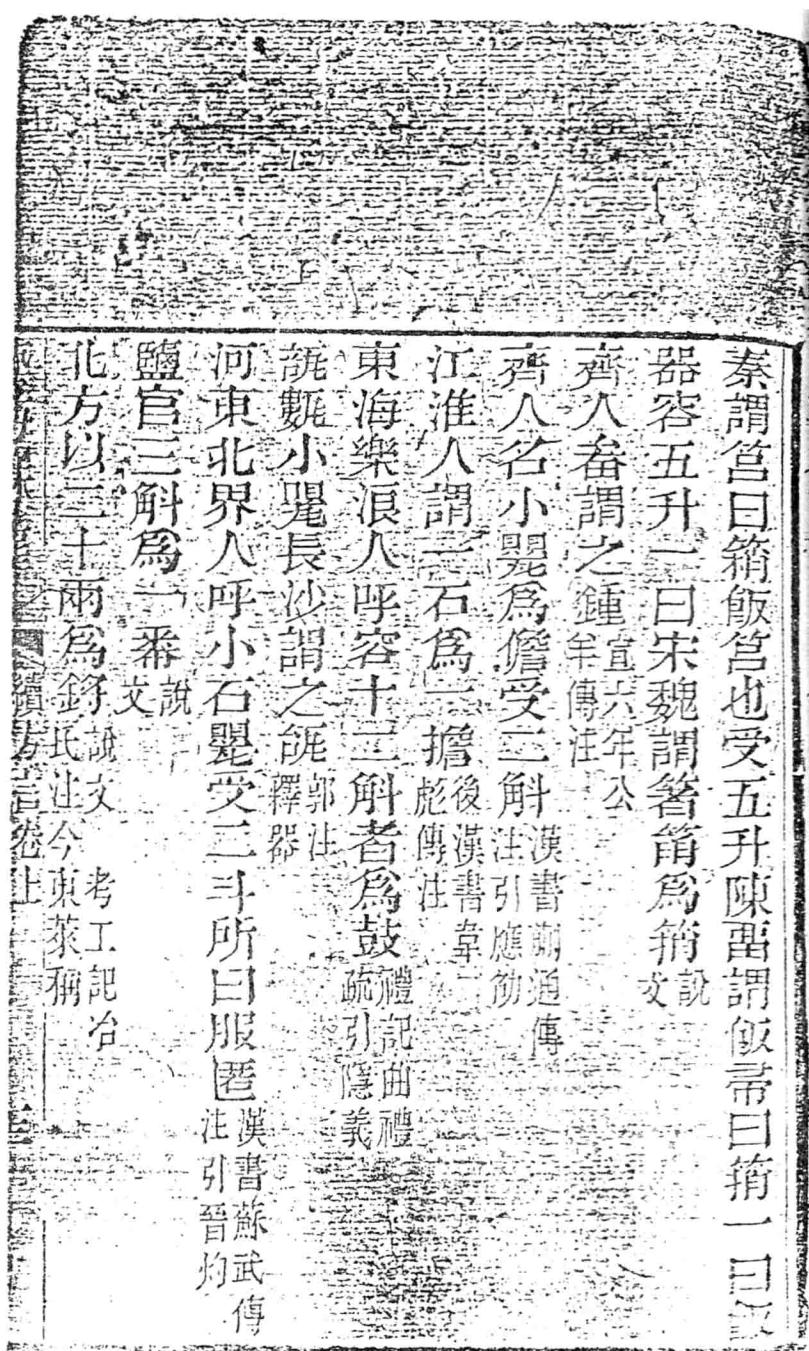 秦謂筥曰䈰飯筥也受五升陳畱謂飯帚曰䈰一曰飯
器容五升一曰宋魏謂箸筩爲䈰說文
齊人畚謂之鍾宣六年公羊傳注
齊人名小甖爲儋受二斛漢書蒯通傳注引應劭
江淮人謂一石爲一擔後漢書韋彪傳注
東海樂浪人呼容十二斛者爲鼓禮記曲禮疏引隱義
瓵甊小甖長沙謂之瓵郭注釋器
河東北界人呼小石甖受二斗所曰服匿漢書蘇武傳注引晉灼
鹽官三斛爲一㪵說文
北方以二十兩爲鋝說文 考工記冶氏注今東萊稱
續方言卷上